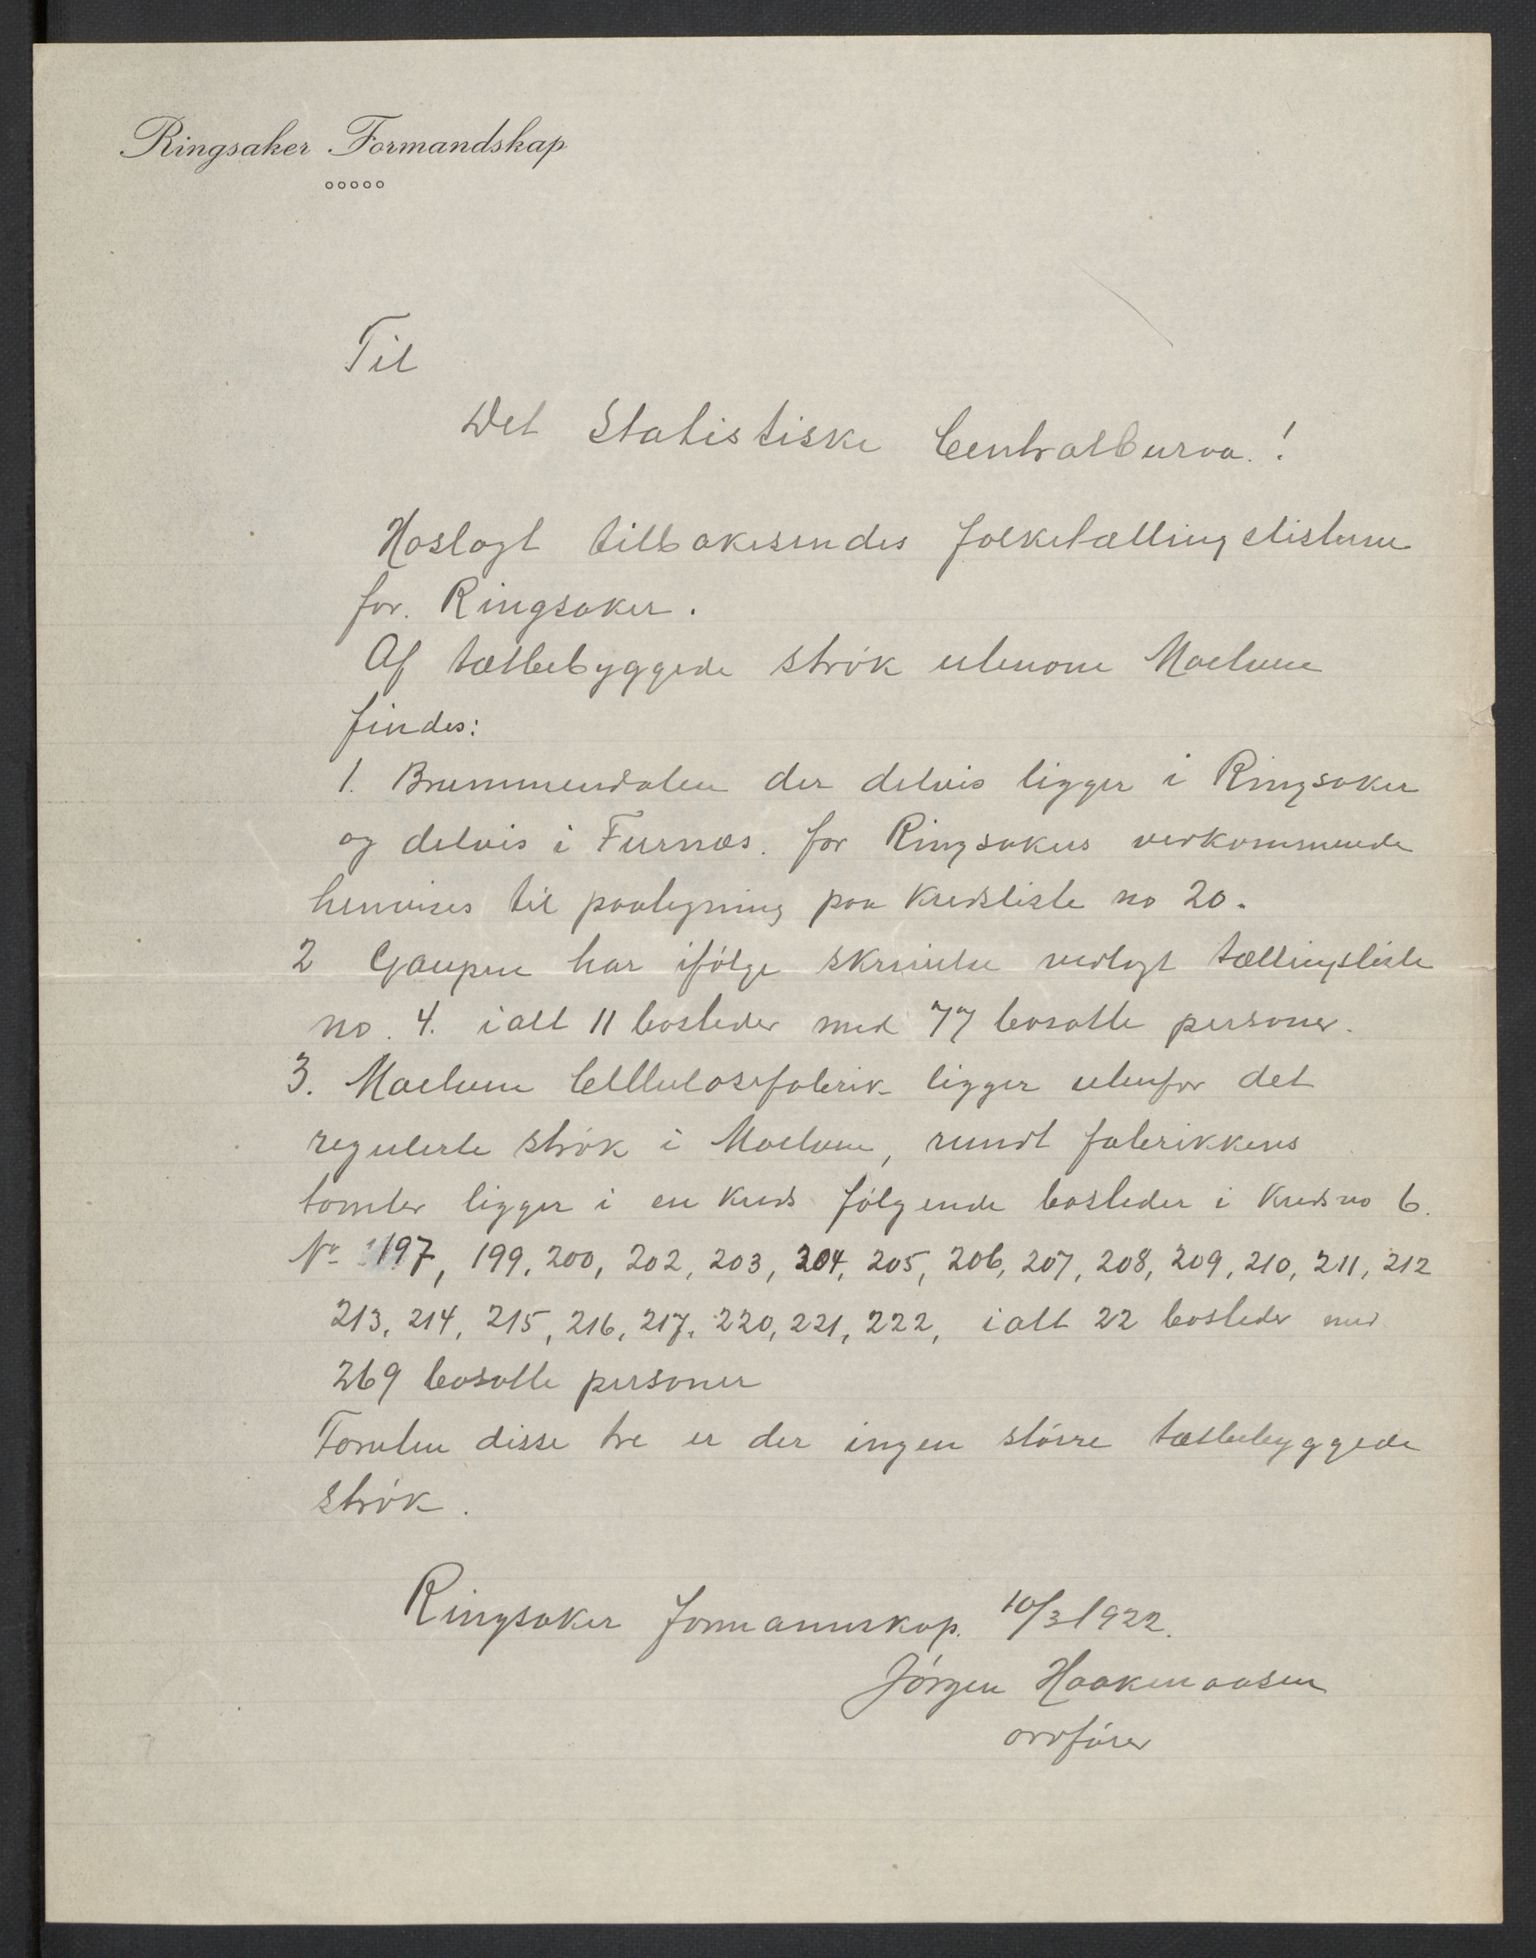 Ringsaker Formandskap
Til
Det Statistiske Centralburoa.!
Hoslagt tilbakesendes folketællingslisterne
for. Ringsaker.
Af tætbebyggede strøk utenom Moelven
findes:
1. Brummendalen der delvis ligger i Ringsaker
og delvis i Furnæs. for Ringsakers vedkommende
henvises til paategning paa Kredsliste no 20.
2 Gaupen har ifølge skrivelse vedlagt tællingsliste
no. 4. ialt 11 bosteder med 77 bosatte personer.
3. Moelven Cellulosefabrik ligger utenfor det
regulerte strøk i Moelven, rundt fabrikkens
tomter ligger i en kreds følgende bosteder i Kreds no 6.
No 197, 199, 200, 202, 203, 204, 205, 206, 207, 208, 209, 210, 211, 212
213, 214, 215, 216, 217, 220, 221, 222, ialt 22 bosteder med
269 bosatte personer
Foruten disse tre er der ingen større tætbebyggede
strøk.
Ringsaker formannskap. 10/3 1922.
Jørgen Haakenaasen
ordfører